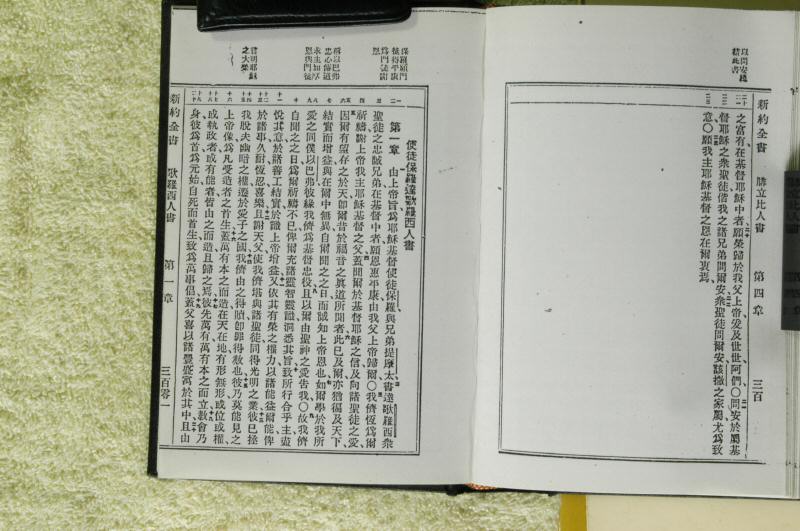 以問安總
結此書
新約全書 腓立比人書 第四章 三百
之富有在基督耶穌中者願榮歸於我父上帝爰及世世阿們〇問安於屬基
督耶穌之衆聖徒偕我之諸兄弟問爾安衆聖徒問爾安該撒之家屬尤爲致
意〇願我主耶穌基督之恩在爾衷焉
保羅願門
徒得平康
爲門徒謝
恩
稱以巴弗
忠心傳道
求主加厚
恩與門徒
曾明耶穌
之大榮
使徒保羅達歌羅西人書
第一章 由上帝旨爲耶穌基督使徒保羅與兄弟提摩太書達歌羅西衆
聖徒之忠誠兄弟在基督中者願恩惠平康由我父上帝歸爾〇我儕恆爲爾
祈禱謝上帝我主耶穌基督之父蓋聞爾於基督耶穌之信及向諸聖徒之愛
因爾有望存之於天卽爾昔於福音之眞道所聞者此已及爾亦猶徧及天下
結實而增益與在爾中無異自爾聞之之日而誠知上帝恩也如爾學於我所
愛之同僕以巴弗彼緣我儕爲基督忠役且以爾由聖神之愛告我〇故我儕
自聞之之日爲爾祈禱不已俾爾充諸靈智靈識洞悉其旨致所行合乎主盡
悅其意於諸善工結實於識上帝增益又依其有榮之權力以諸能益爾能俾
於諸事久耐恆忍喜樂且謝天父使我儕堪與諸聖徒同得光明之業彼已拯
我脫夫幽暗之權遷於愛子之國我儕由之得贖卽罪得赦也彼乃莫能見之
上帝像爲凡受造者之首生蓋萬有本之而造在天在地有形無形或位或權
或執政者或有能者皆由之而造且歸之焉彼先萬有萬有本之而立敎會乃
身彼爲首爲元始自死而首生致爲萬事倡蓋父喜以諸豐盛寓於其中且由
新約全書 歌羅西人書 第一章 三百零一